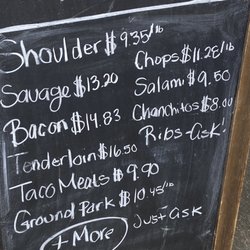 Shoulder $9.35/lb
Savage $13.20
Bacon $14.83
Tenderloin $16.50
Taco Meals $9.90
Ground Park $10.45/lb
+ More
Chops $11.25/lb
Salami $9.50
Chanchitos $8.00
Ribs-Ask!
Just ask